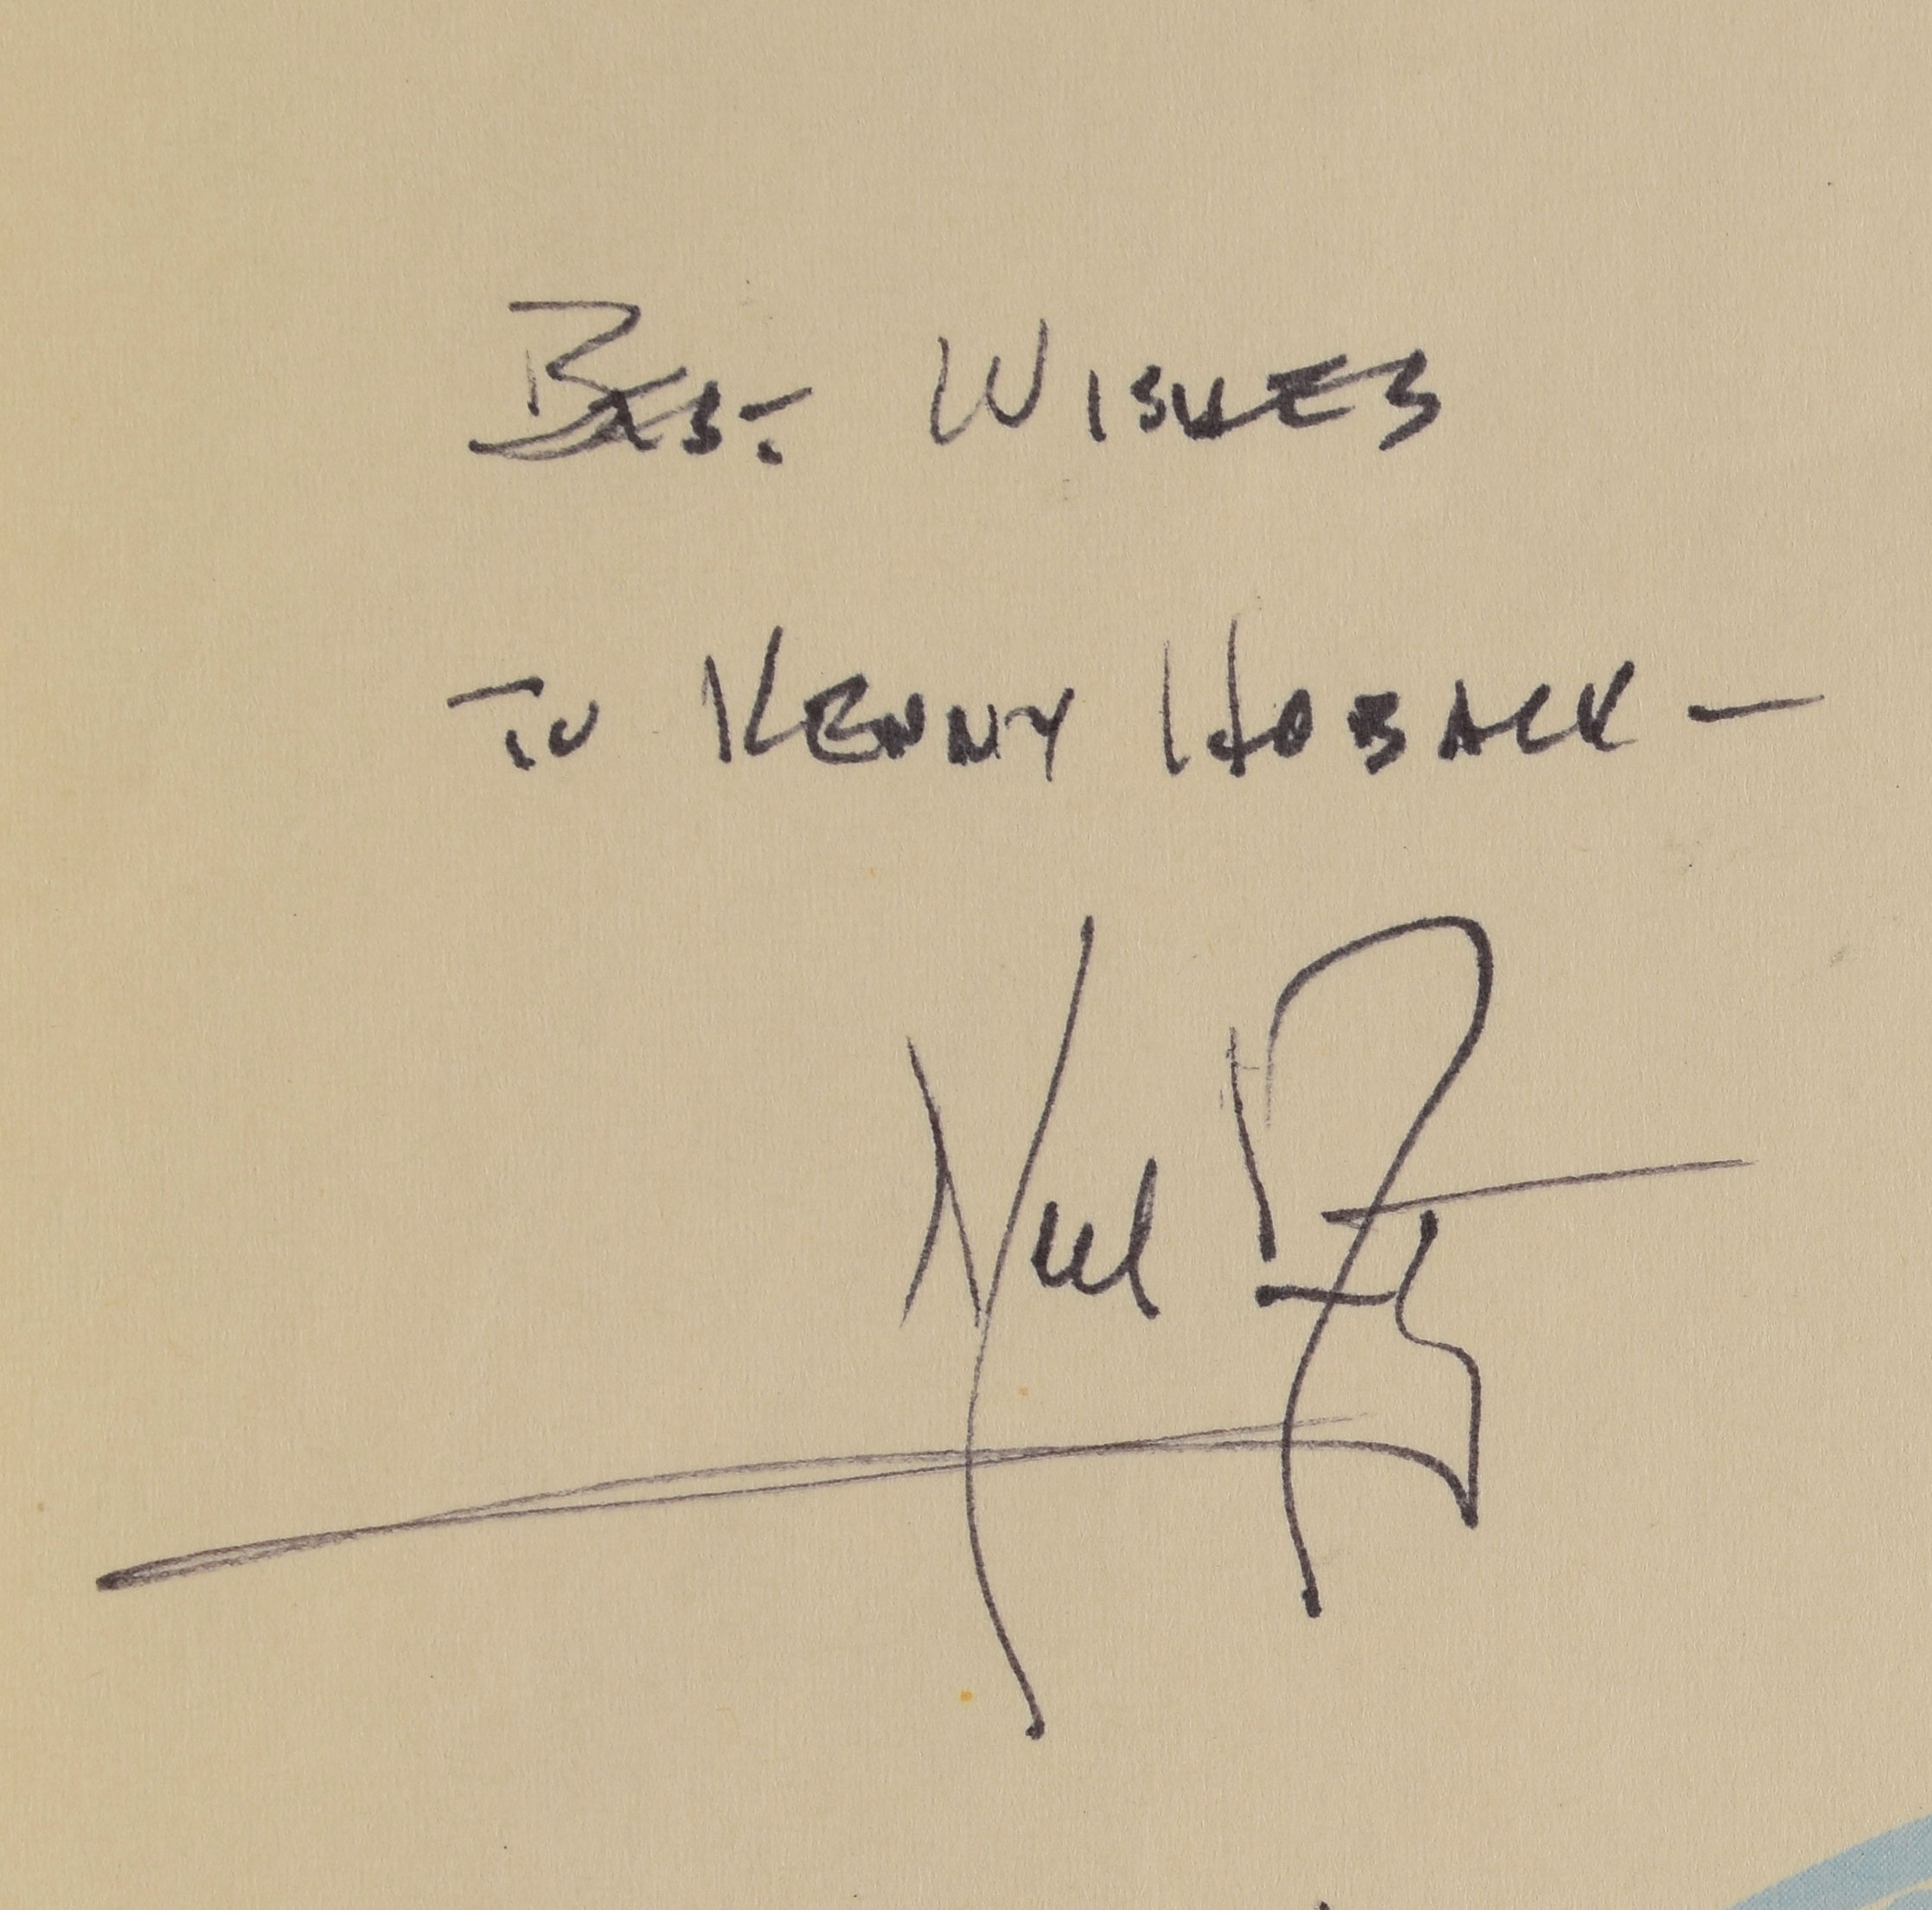 BEST WISHES
TO KENNY HOBACK —
Neil